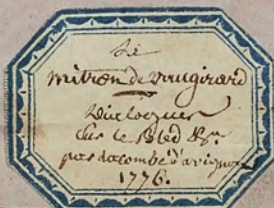 Le
mitron de vaugirard
Dialogues
Sur le Bled &ca
par lacombe d'avignon
1776.